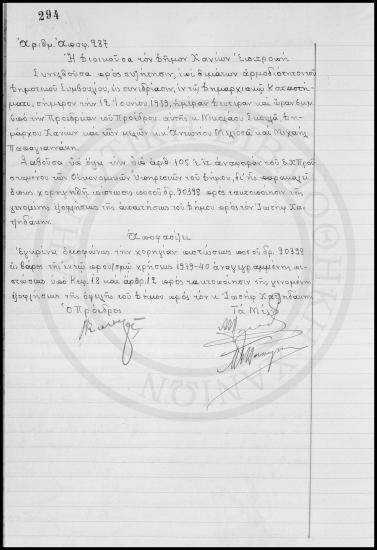 294
Ἀριθμ. Ἀποφ. 287
Ἡ Διοικοῦσα τὸν Δῆμον Χανίων Ἐπιτροπή
Συνελθοῦσα πρὸς συζήτησιν, ἐπὶ θεμάτων ἁρμοδιότητος τοῦ
Δημοτικοῦ Συμβουλίου, ἐν συνεδριάσει, ἐν τῷ Δημαρχιακῷ Καταστή-
ματι, σήμερον τὴν 12 Ἰουνίου 1939, ἡμέραν Δευτέραν καὶ ὥραν μ.μ.
ὑπὸ τὴν Προεδρίαν τοῦ Προέδρου αὐτῆς κ. Νικολάου Σκουλᾶ Δη-
μάρχου Χανίων καὶ τῶν μελῶν κ.κ. Ἀντωνίου Μυλωσᾶ καὶ Μιχαὴλ
Παπαγιαννάκη.
Λαβοῦσα ὑπ' ὄψιν τὴν ὑπ' ἀριθ. 105 ἀναφορὰν τοῦ Προϊ-
σταμένου τῶν Οἰκονομικῶν Ὑπηρεσιῶν τοῦ Δήμου, δι' ἧς παρακαλεῖ
ὅπως χορηγηθῇ πίστωσις ποσοῦ δρ. 90398 πρὸς τακτοποίησιν τῆς
γενομένης ἐξοφλήσεως τῆς ἀπαιτήσεως τοῦ Δήμου πρὸς τὸν Ἰωσὴφ Χα-
τζηδάκην.
Ἀποφασίζει
Ἐγκρίνει ὁμοφώνως τὴν χορήγησιν πιστώσεως ποσοῦ δρ. 90398
εἰς βάρος τῆς ἐν τῷ προϋπ/σμῷ χρήσεως 1939-40 ἀναγεγραμμένης πι-
στώσεως ὑπὸ Κεφ. 18 καὶ ἄρθρ. 12 πρὸς τακτοποίησιν τῆς γενομένης
ἐξοφλήσεως τῆς ὀφειλῆς τοῦ Δήμου πρὸς τὸν κ. Ἰωσὴφ Χατζηδάκην.
Ὁ Πρόεδρος Τὰ Μέλη